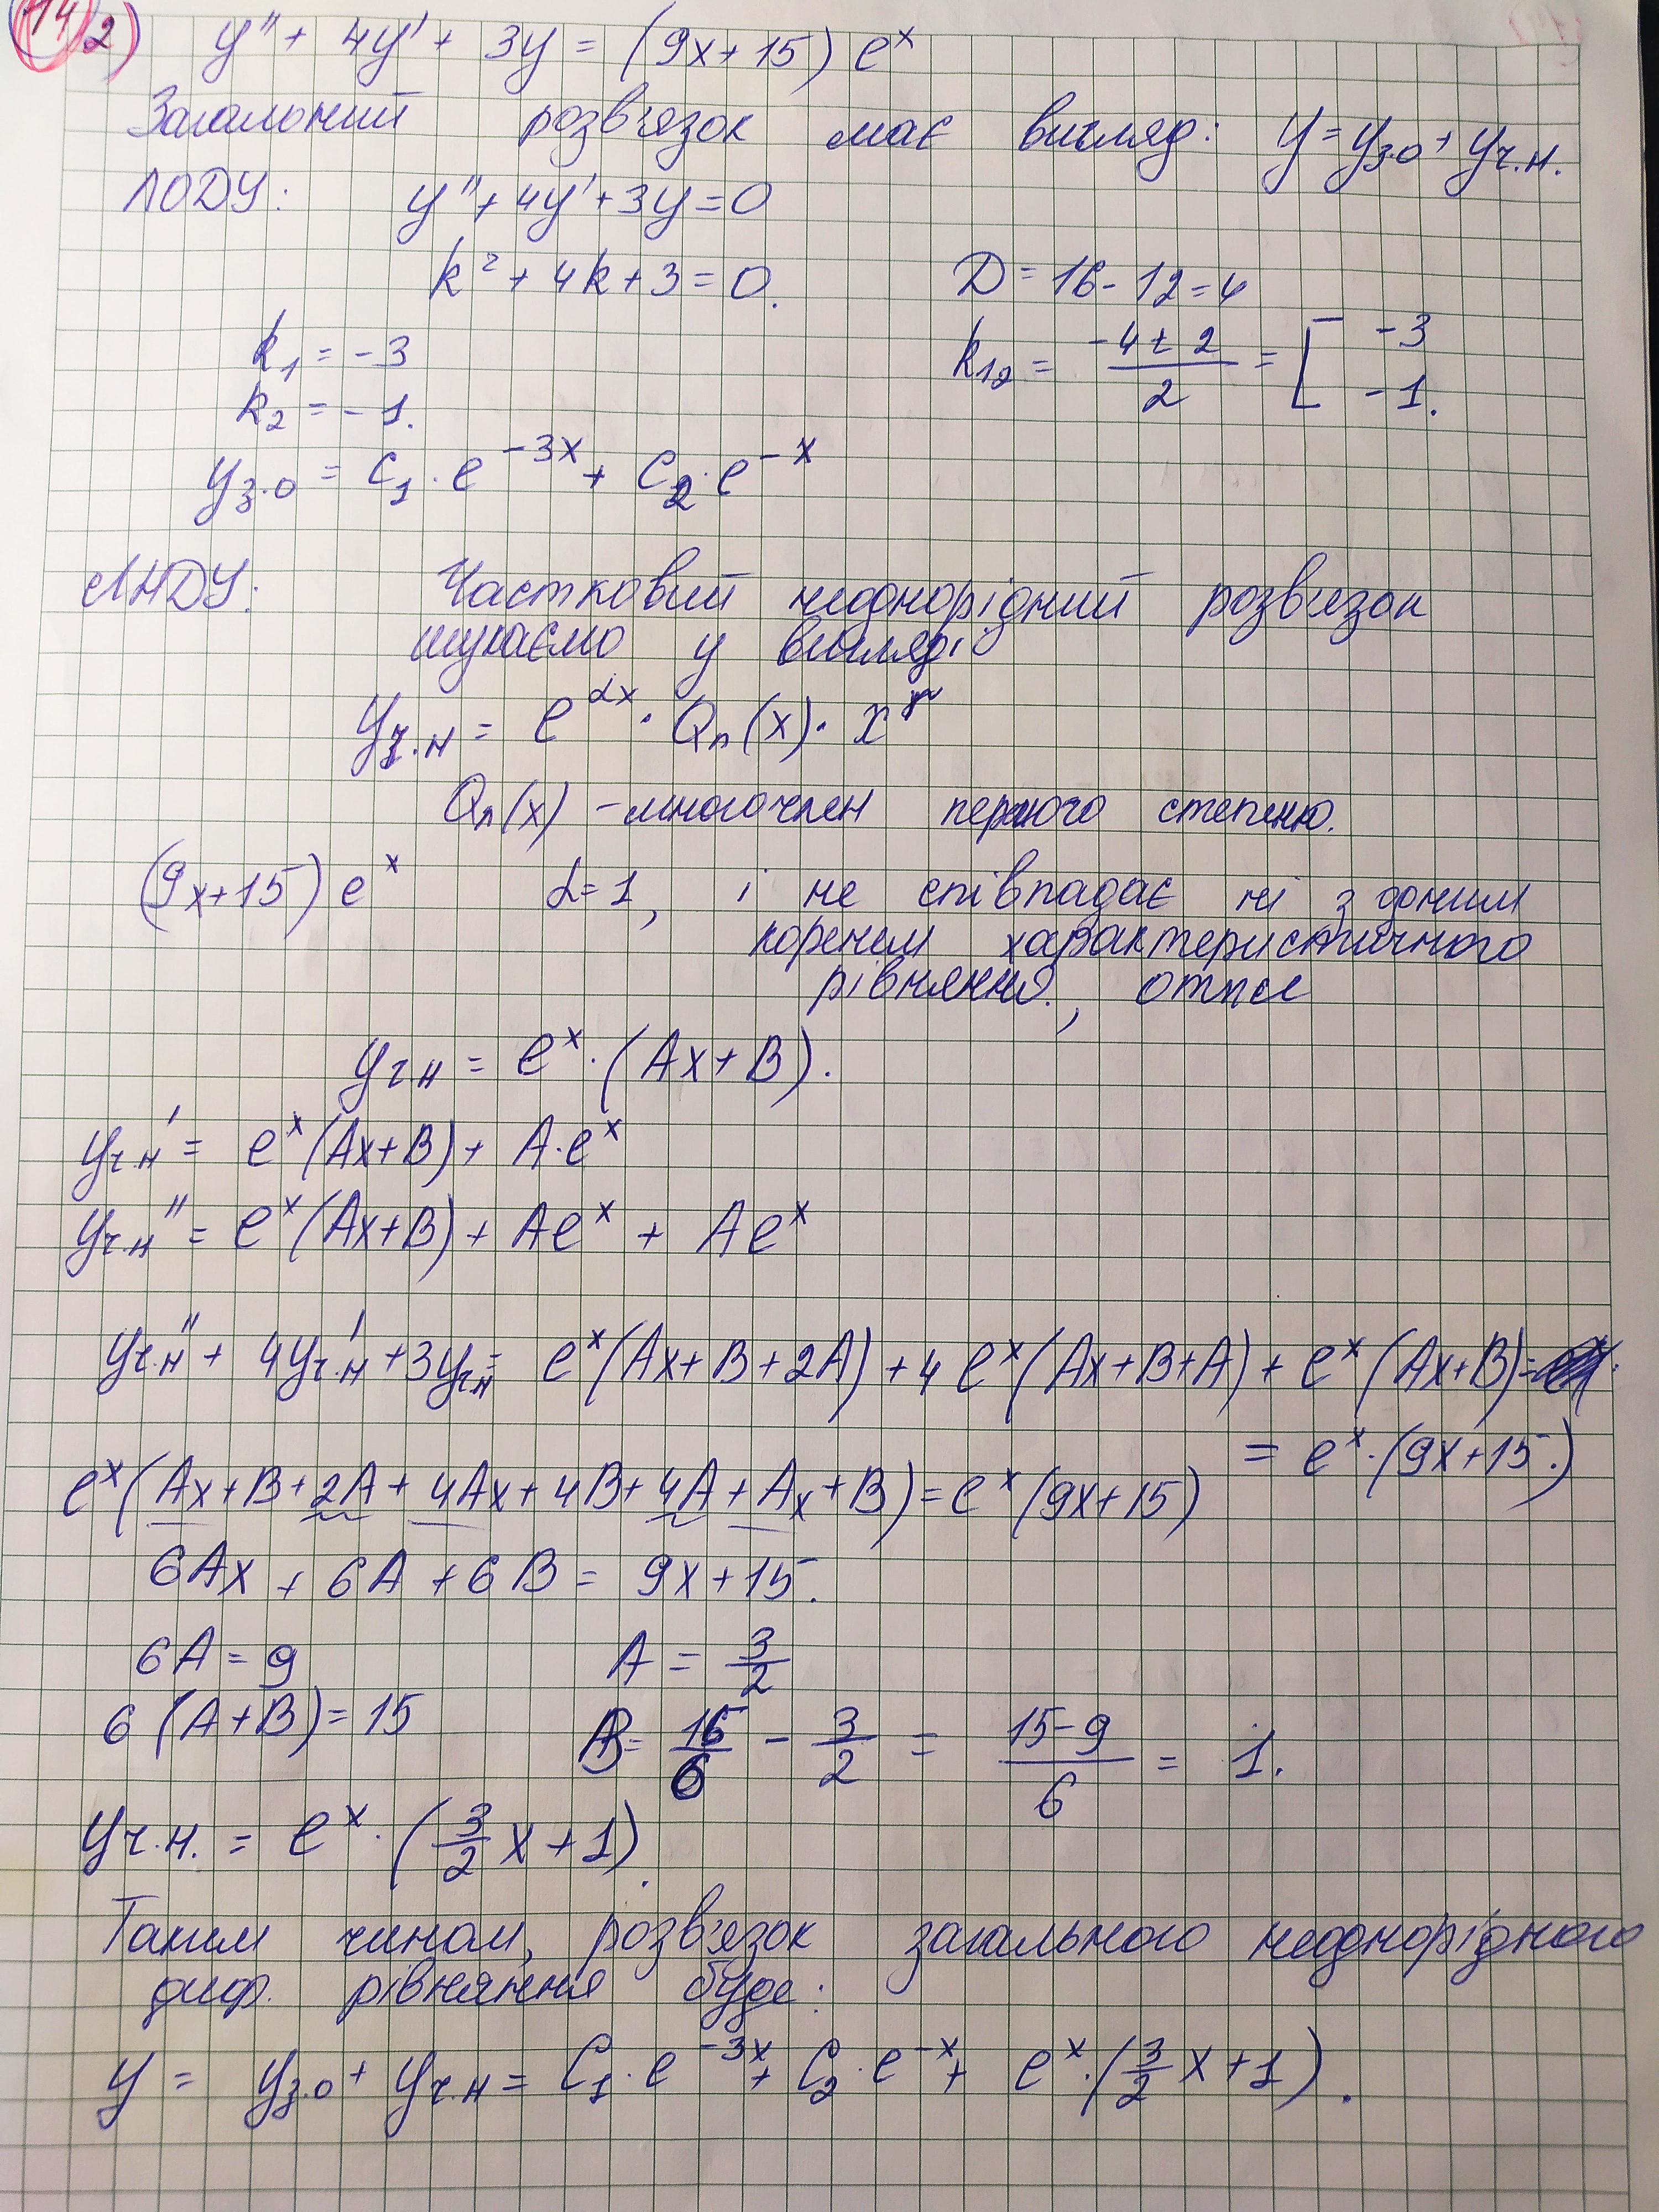 14 2) y'' + 4y' + 3y = (9x+15) e^x
Загальний розв'язок має вигляд: y = y_з.о + y_ч.н.
ЛОДУ: y'' + 4y' + 3y = 0
k² + 4k + 3 = 0. D = 16 - 12 = 4
k₁ = -3 k₁₂ = (-4 ± 2)/2 = [ -3
k₂ = -1. -1.
y_з.о = C₁ · e^{-3x} + C₂ · e^{-x}
ЛНДУ: Частковий неоднорідний розв'язок
шукаємо у вигляді
y_ч.н = e^{αx} · Qₙ(x) · x^r
Qₙ(x) - многочлен першого степеню.
(9x+15) e^x α = 1, і не співпадає ні з одним
коренем характеристичного
рівняння, отже
y_чн = e^x · (Ax + B).
y_ч.н' = e^x (Ax+B) + A · e^x
y_ч.н'' = e^x (Ax+B) + Ae^x + Ae^x
y_ч.н'' + 4y_ч.н' + 3y_чн = e^x (Ax+B+2A) + 4 e^x (Ax+B+A) + e^x (Ax+B) =
= e^x · (9x+15.)
e^x (Ax+B+2A+4Ax+4B+4A+Ax+B) = e^x (9x+15)
6Ax + 6A + 6B = 9x+15.
6A = 9 A = 3/2
6 (A+B) = 15 B = 15/6 - 3/2 = (15-9)/6 = 1.
y_ч.н. = e^x · (3/2 x + 1).
Таким чином, розв'язок загального неоднорідного
диф. рівняння буде:
y = y_з.о + y_ч.н = C₁ · e^{-3x} + C₂ · e^{-x} + e^x · (3/2 x + 1).